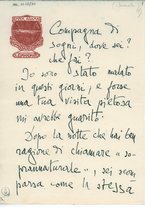 Compagna di
sogni, dove sei?
che fai?
Io sono stato malato
in questi giorni, e forse
una tua visita pietosa
mi avrebbe guarito.
Dopo la notte che hai
ragione di chiamare "so-
prannaturale", sei scom-
parsa come te stessa